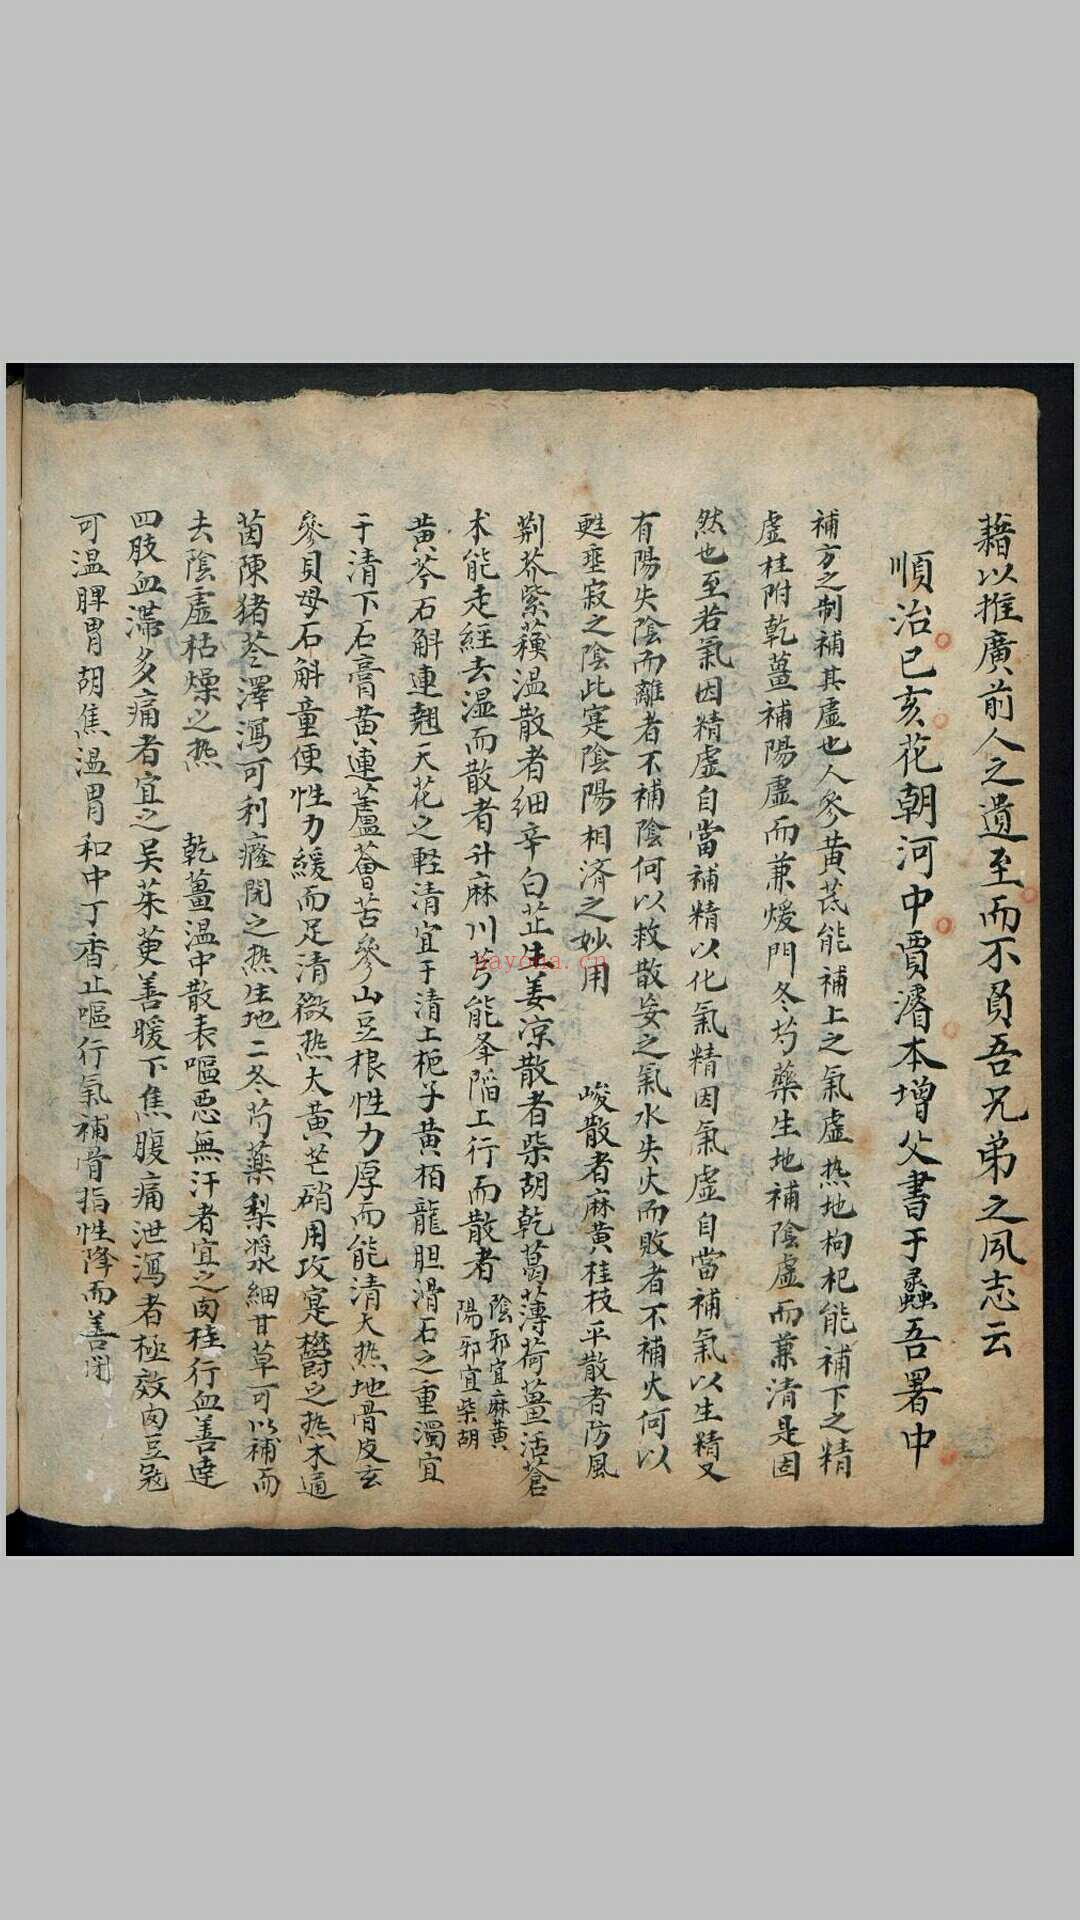 藉以推廣前人之遺至而不負吾兄弟之夙志云
順治已亥花朝河中賈濬本增父書于蠡吾署中
補方之制補其虛也人參黃芪能補上之氣虛熱地枸杞能補下之精
虛桂附乾薑補陽虛而兼煖門冬芍藥生地補陰虛而兼清是固
然也至若氣因精虛自當補精以化氣精因氣虛自當補氣以生精又
有陽失陰而離者不補陰何以救散妄之氣水失火而敗者不補火何以
甦垂寂之陰此寔陰陽相済之妙用 峻散者麻黃桂枝平散者防風
荆芥紫蘓温散者細辛白芷生姜凉散者柴胡乾葛薄荷薑活蒼
术能走經去湿而散者升麻川芎能夅䧟上行而散者 陰邪宜麻黄 陽邪宜柴胡
黃芩石斛連翹天花之輕清宜于清上梔子黃栢龍胆滑石之重濁宜
于清下石膏黄連蘆薈苦參山豆根性力厚而能清大热地骨皮玄
參貝母石斛童便性力緩而足清微热大黃芒硝用攻寔欝之热木通
茵陳猪苓澤瀉可利癃閉之热生地二冬芍藥梨漿細甘草可以補而
去陰虛枯燥之热 乾薑温中散表嘔惡無汗者宜之肉桂行血善達
四肢血滯多痛者宜之吴茱萸善暖下焦腹痛泄瀉者極效肉豆宼
可温脾胃胡焦温胃和中丁香止嘔行氣補骨指性降而善闭
nayona.cn